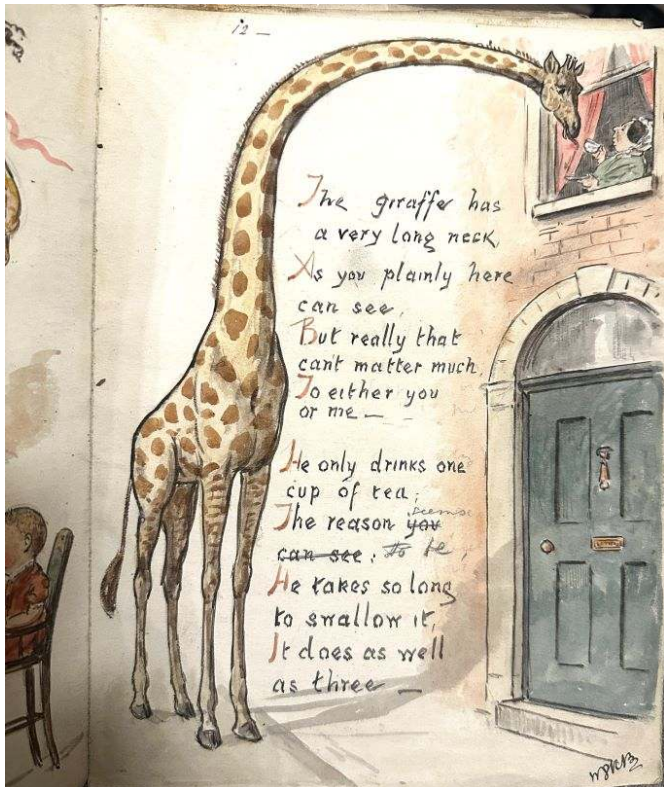 12 —
The giraffe has
a very long neck,
As you plainly here
can see,
But really that
cant matter much,
To either you
or me —
He only drinks one
cup of tea;
seems
The reason you
can see: to be
He takes so long
to swallow it,
It does as well
as three —